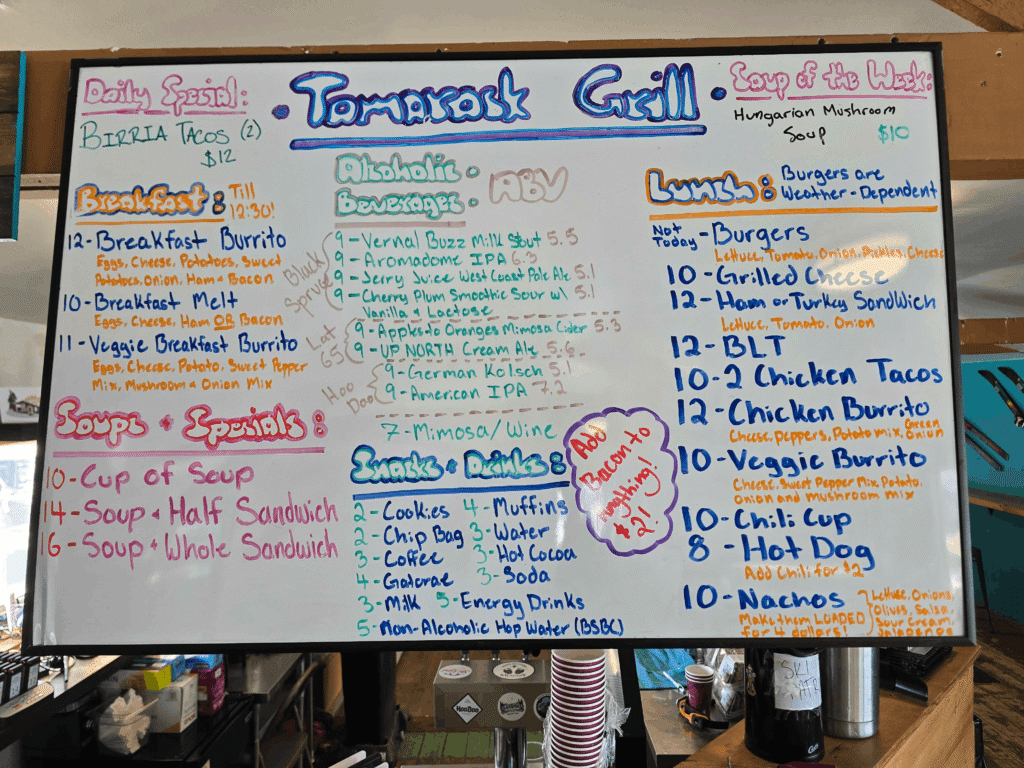 • Tomarack Grill •
Daily Special:
BIRRIA TACOS (2)
$12
Soup of the Week:
Hungarian Mushroom
Soup $10
Breakfast: Till
12:30!
12-Breakfast Burrito
Eggs, Cheese, Potatoes, Sweet
Potatoes, Onion, Ham + Bacon
10-Breakfast Melt
Eggs, Cheese, Ham OR Bacon
11-Veggie Breakfast Burrito
Eggs, Cheese, Potato, Sweet Pepper
Mix, Mushroom + Onion Mix
Soups + Specials:
10-Cup of Soup
14-Soup + Half Sandwich
16-Soup + Whole Sandwich
Alcoholic
Beverages: ABV
Black
Spruce
9-Vernal Buzz Milk Stout 5.5
9-Aromadome IPA 6.3
9-Jerry Juice West Coast Pale Ale 5.1
9-Cherry Plum Smoothie Sour w/ 5.1
Vanilla + Lactose
Lat
65
9-Apples to Oranges Mimosa Cider 5.3
9-UP NORTH Cream Ale 5.6
Hoo
Doo
9-German Kolsch 5.1
9-American IPA 7.2
7-Mimosa/Wine
Snacks + Drinks:
2-Cookies 4-Muffins
2-Chip Bag 3-Water
3-Coffee 3-Hot Cocoa
4-Gatorae 3-Soda
3-Milk 5-Energy Drinks
5-Non-Alcoholic Hop Water (BSBC)
Add
Bacon to
Anything!
$2!
Lunch: Burgers are
Weather-Dependent
Not
Today-Burgers
Lettuce, Tomato, Onion, Pickles, Cheese
10-Grilled Cheese
12-Ham or Turkey Sandwich
Lettuce, Tomato, Onion
12-BLT
10-2 Chicken Tacos
12-Chicken Burrito
Cheese, Peppers, Potato mix, Green Onion
10-Veggie Burrito
Cheese, Sweet Pepper Mix, Potato,
onion and mushroom mix
10-Chili Cup
8-Hot Dog
Add Chili for $2
10-Nachos
Make them LOADED
for 4 dollars!
Lettuce, Onions,
Olives, Salsa,
Sour Cream,
Jalapenos
HooDoo
SKI